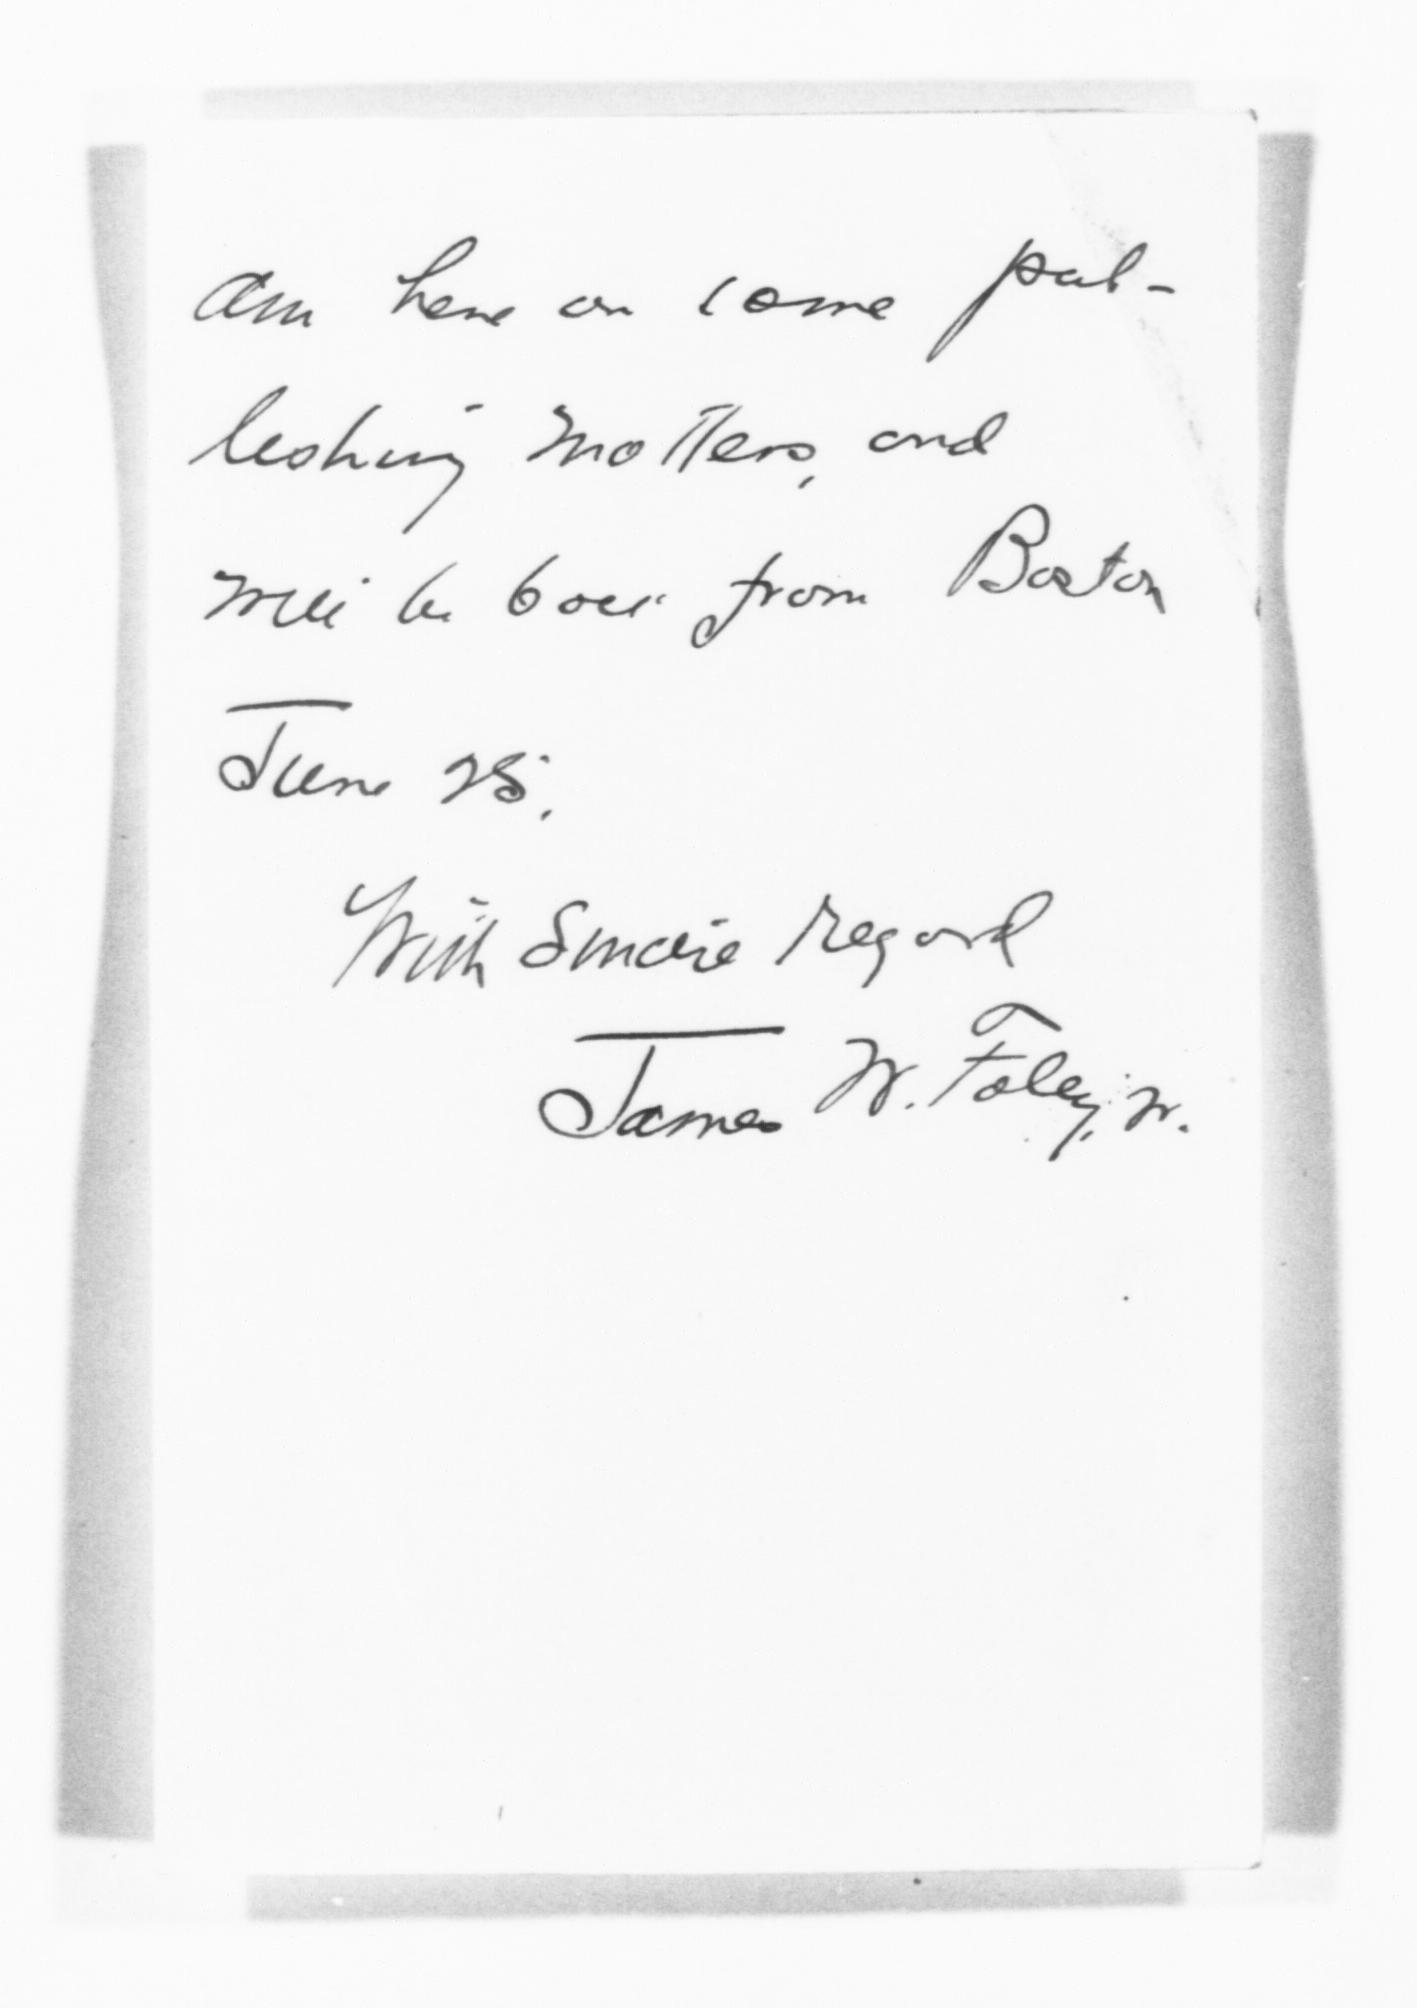 am here on some pub-
lishing matters, and
will be back from Boston
June 25.
With Sincere regard
James W. Foley, Jr.